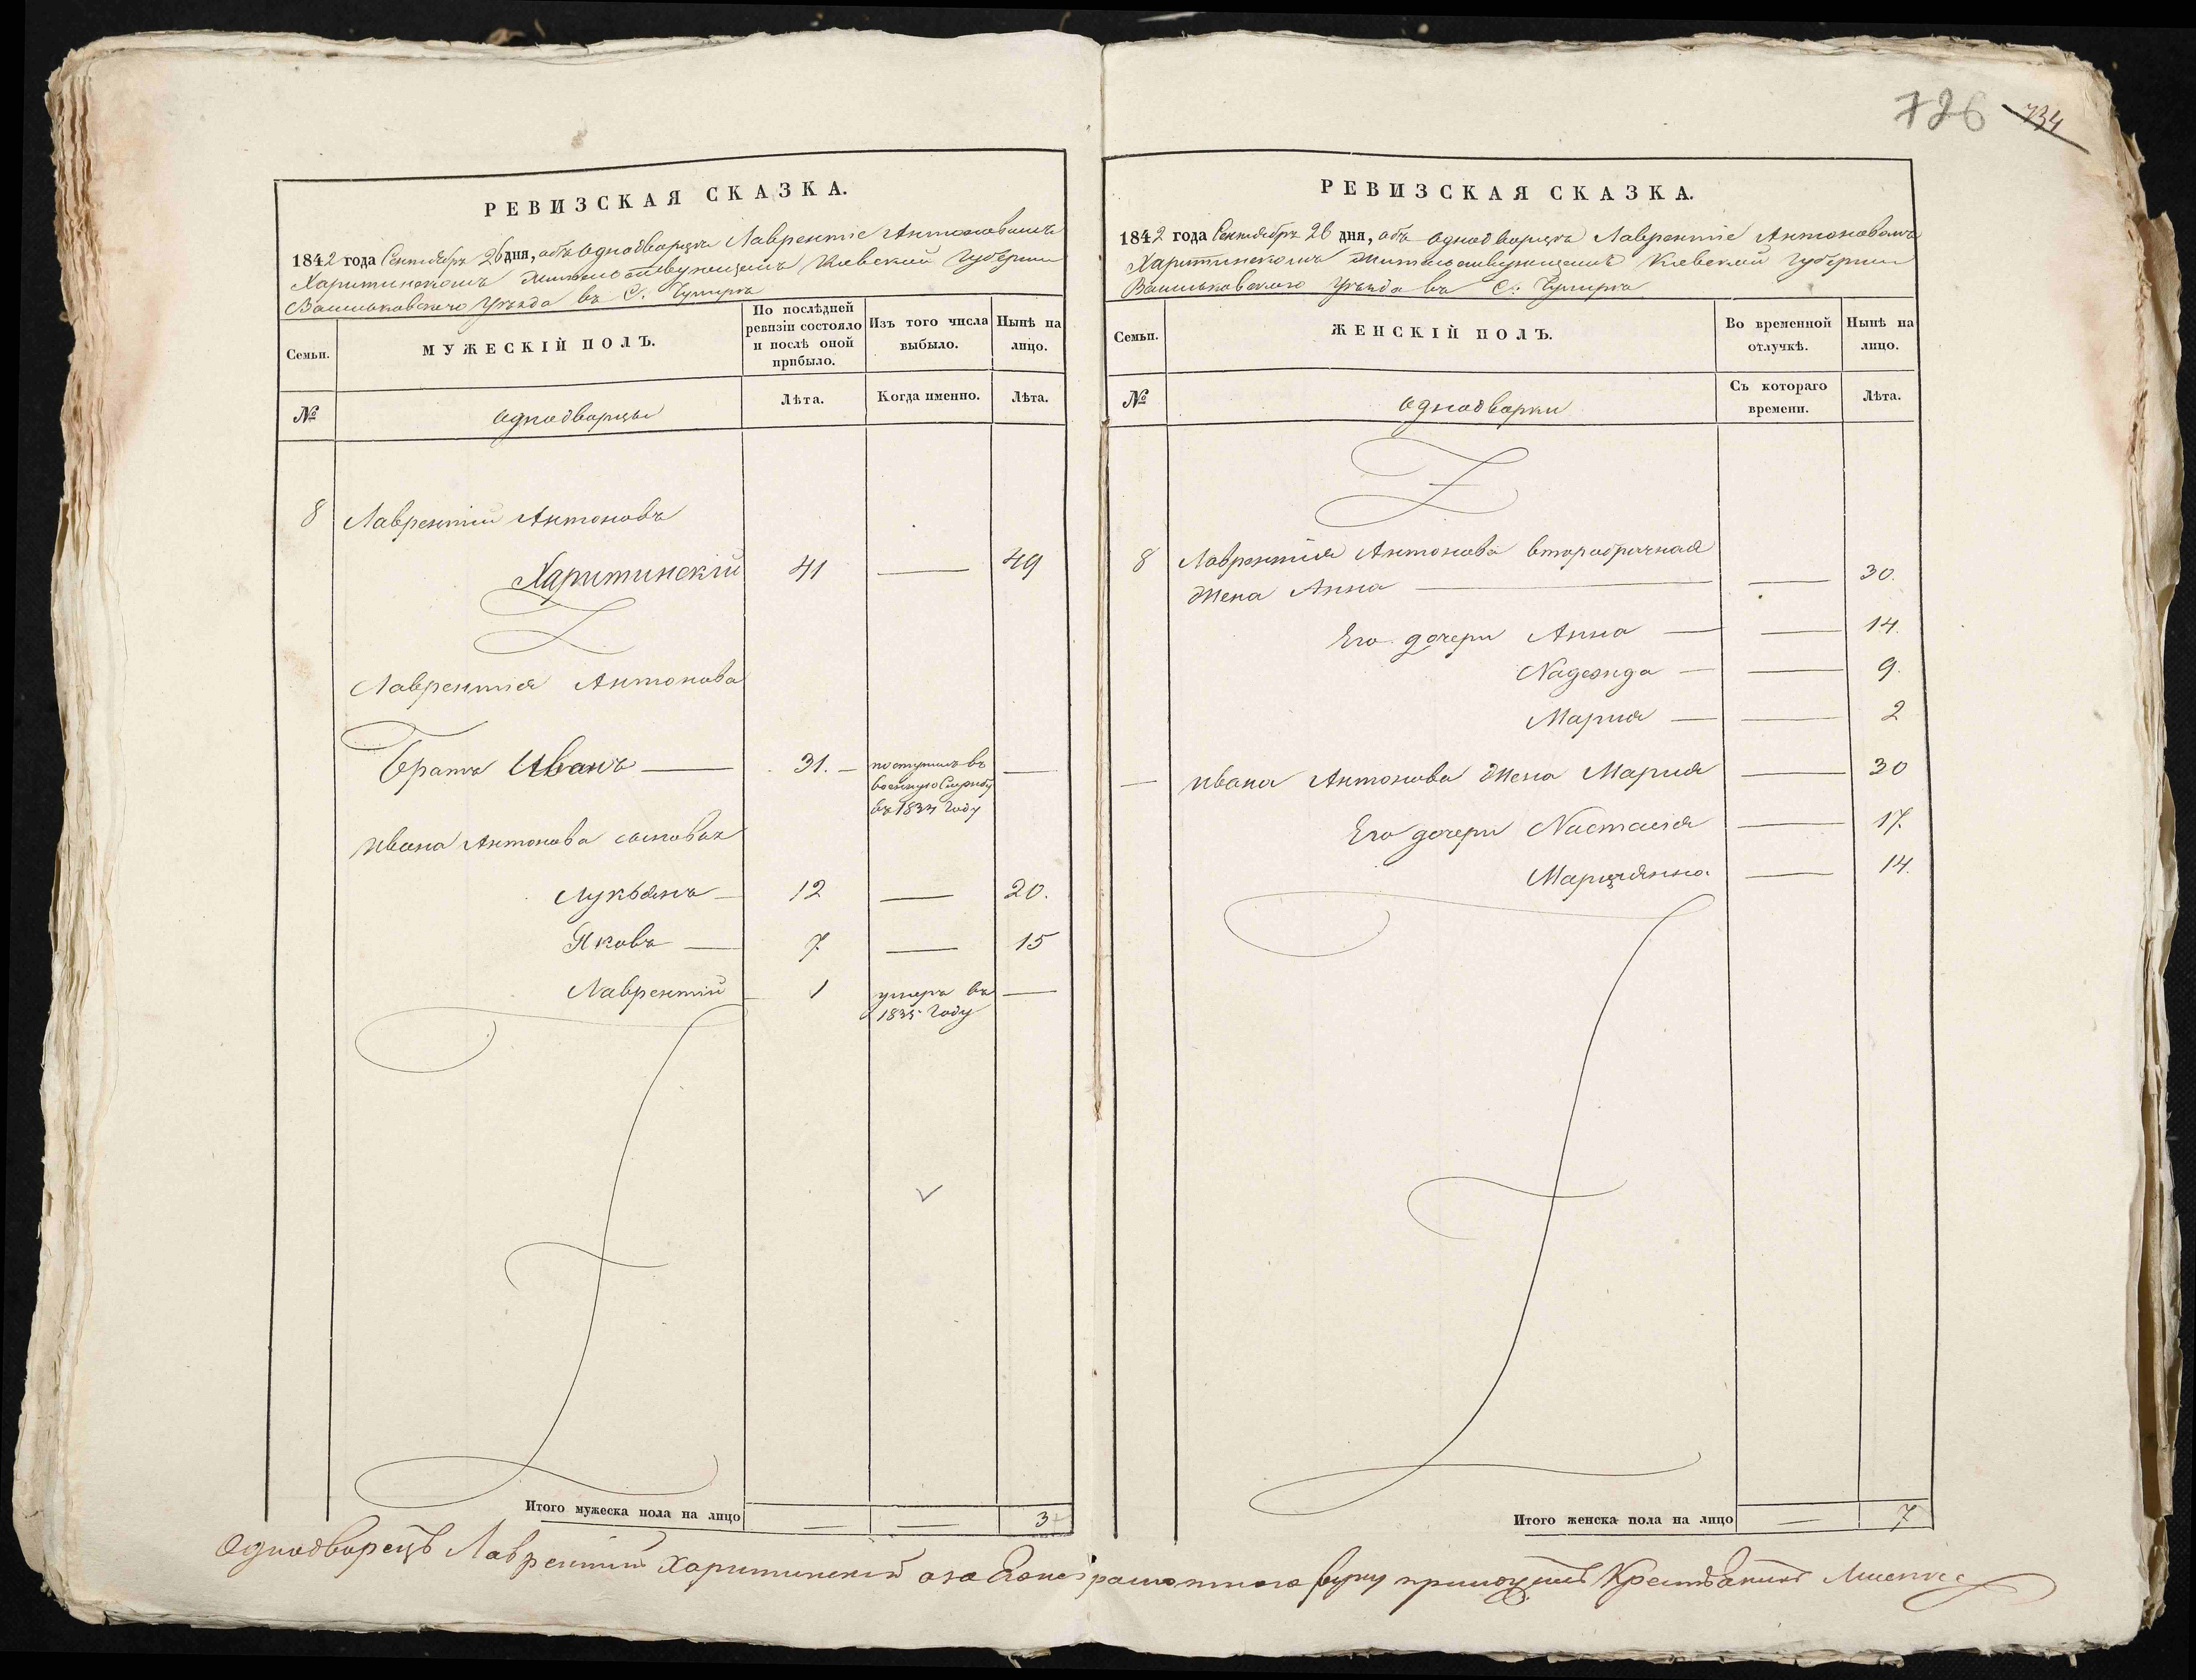 726 734
РЕВИЗСКАЯ СКАЗКА.
1842 года Сентября 26 дня, объ однодворцѣ Лаврентіе Антоновомъ
Харитинскомъ жительствующемъ Кіевской Губерніи
Васильковскаго уѣзда въ С.
Семьи.
МУЖЕСКІЙ ПОЛЪ.
По послѣдней ревизіи состояло и послѣ оной прибыло.
Изъ того числа выбыло.
Нынѣ на лицо.
№
однодворцы
Лѣта.
Когда именно.
Лѣта.
8 Лаврентій Антоновъ
Харитинскій 41 — 49
Лаврентія Антонова
братъ Иванъ — 31. — поступилъ въ —
военную службу
въ 1834 году
Ивана Антонова сыновья
Лукьянъ — 12 — 20.
Яковъ — 7 — 15
Лаврентій 1 умеръ въ —
1835 году
Итого мужеска пола на лицо — — 3
РЕВИЗСКАЯ СКАЗКА.
1842 года Сентября 26 дня, объ однодворцѣ Лаврентіе Антоновомъ
Харитинскомъ жительствующемъ Кіевской Губерніи
Васильковскаго уѣзда въ С:
Семьи.
ЖЕНСКІЙ ПОЛЪ.
Во временной отлучкѣ.
Нынѣ на лицо.
№
однодворки
Съ котораго времени.
Лѣта.
8 Лаврентія Антонова второбрачная
жена Анна — — 30.
Его дочери Анна — — 14.
Надежда — — 9.
Мария — — 2
— Ивана Антонова жена Мария — 30
Его дочери Настасія — 17.
Марціянна — 14.
Итого женска пола на лицо — 7
Однодворецъ Лаврентій Харитинскій а за Его неграмотнаго руку приложилъ Крестьянинъ